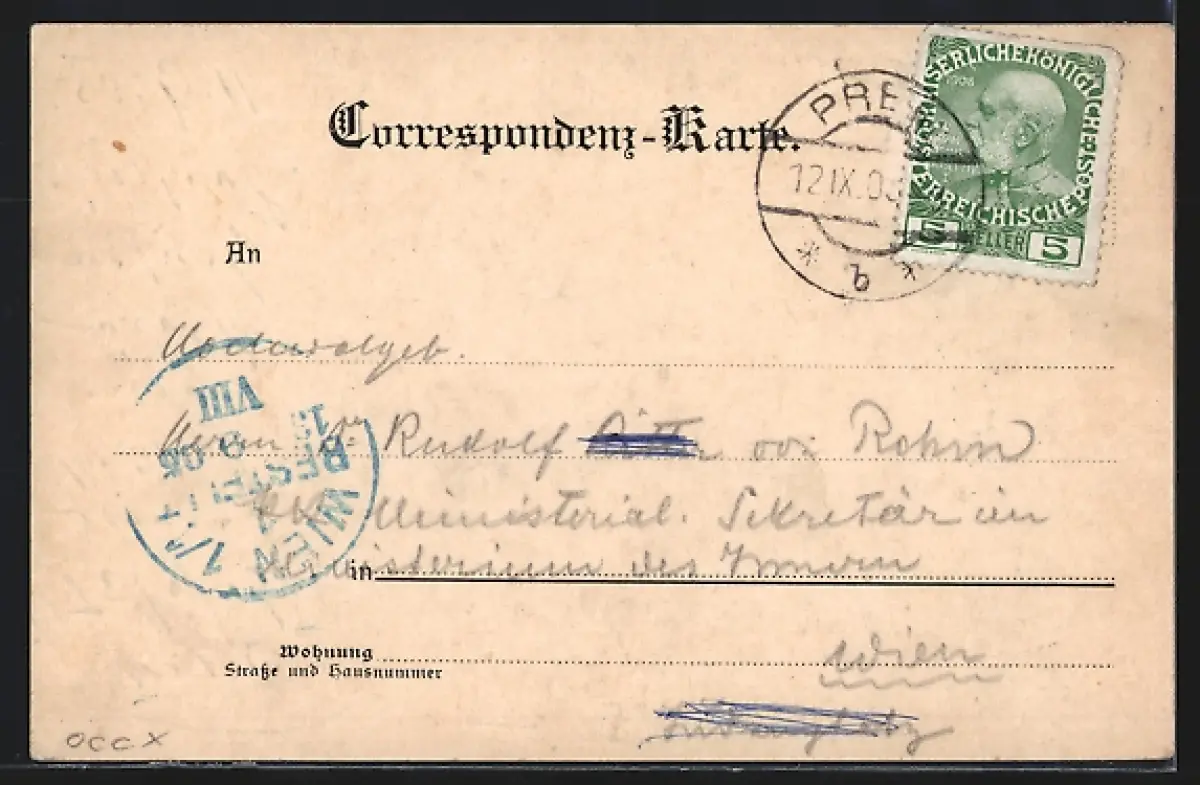 Correspondenz-Karte.
KAISERLICHE KÖNIGLICHE
ÖSTERREICHISCHE POST
1908
5 HELLER 5
PRE
12 IX. 08
q
An
Hochwolgeb.
Herrn Dr. Rudolf von Rohm
KK Ministerial. Sekretär im
in Ministerium des Innern
WIEN
BESTELLT
VIII
Wohnung
Wien
Straße und Hausnummer
OCCX